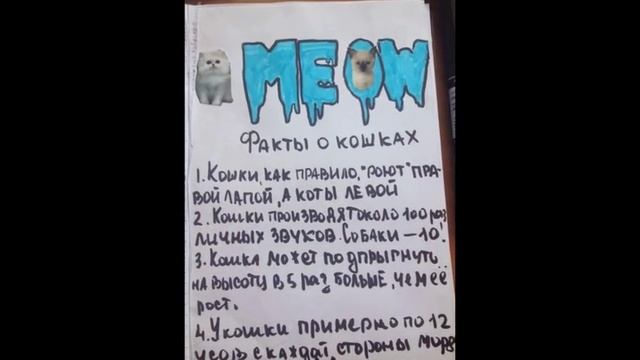 MEOW
ФАКТЫ О КОШКАХ
1. КОШКИ, КАК ПРАВИЛО, "РОЮТ" ПРА-
ВОЙ ЛАПОЙ, А КОТЫ ЛЕВОЙ
2. КОШКИ ПРОИЗВОДЯТ ОКОЛО 100 РАЗ
ЛИЧНЫХ ЗВУКОВ. СОБАКИ – 10!
3. КОШКА МОЖЕТ ПОДПРЫГНУТЬ
НА ВЫСОТУ В 5 РАЗ БОЛЬШЕ, ЧЕМ ЕЁ
РОСТ.
4. У КОШКИ ПРИМЕРНО ПО 12
УСОВ С КАЖДОЙ СТОРОНЫ МОРД